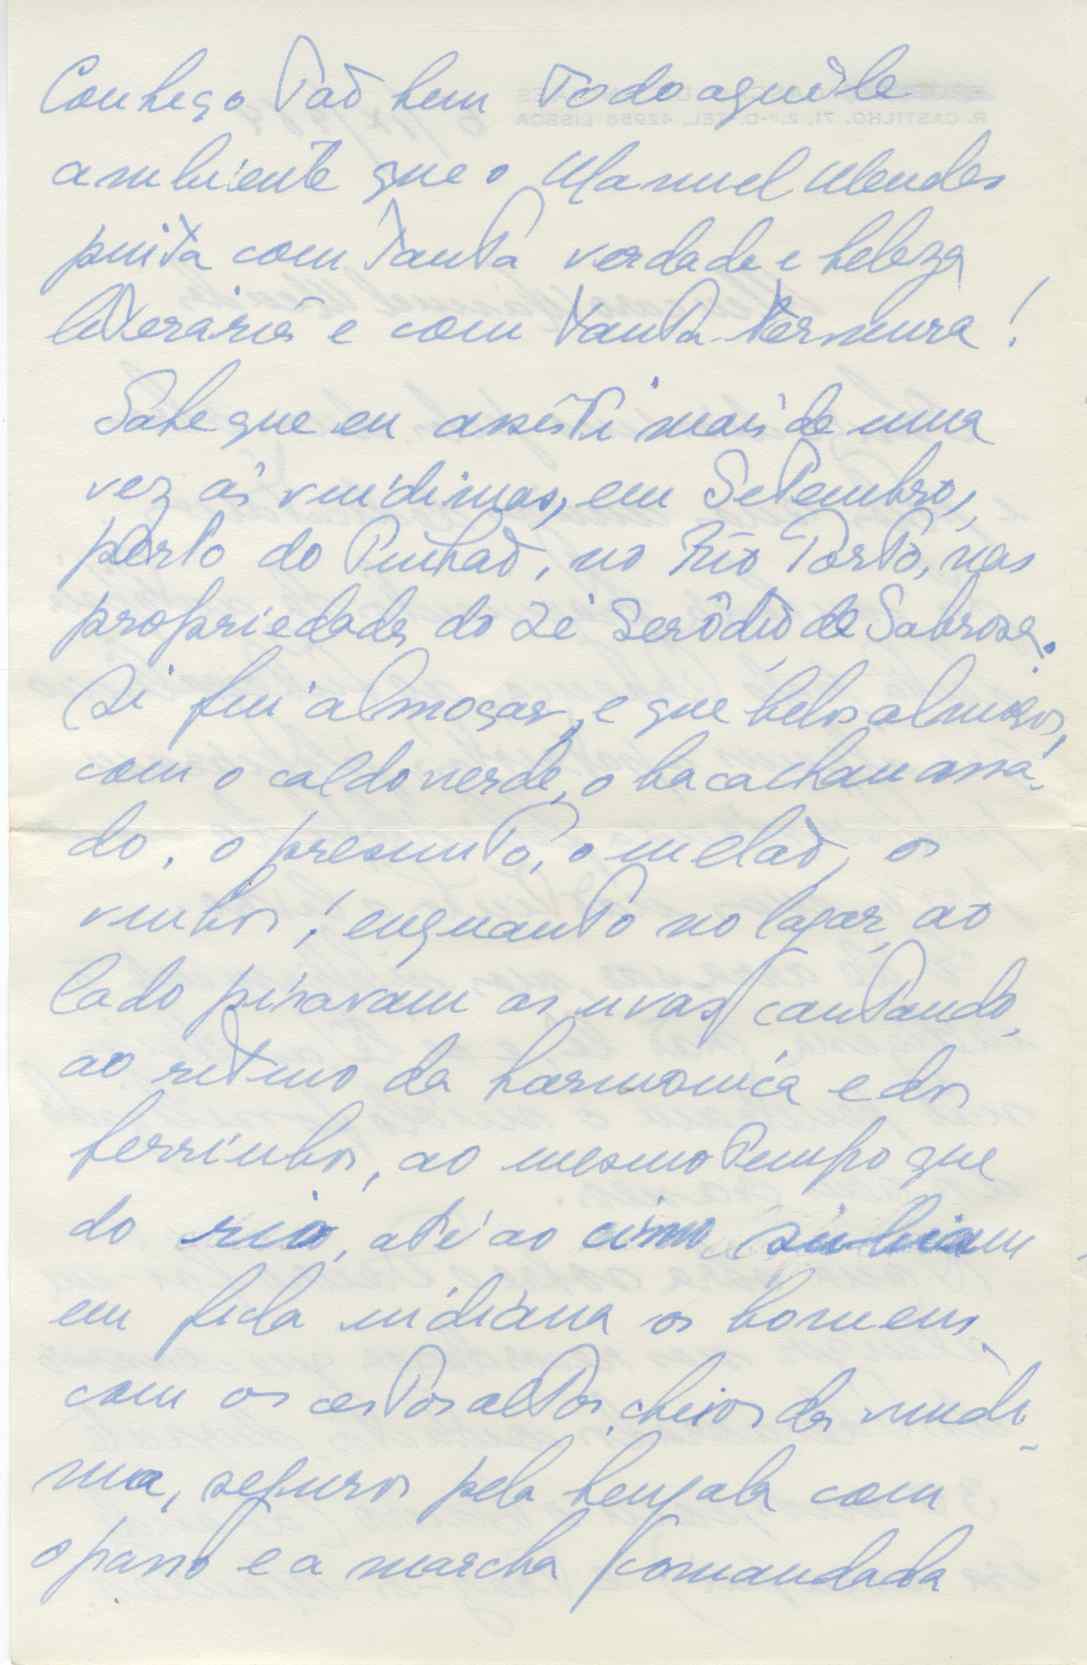 Conheço tão bem todo aquêle
ambiente que o Manuel Mendes
pinta com tanta verdade e beleza
literárias e com tanta ternura!
Sabe que eu assisti mais de uma
vez às vindimas, em Setembro,
perto do Pinhão, no Rio Torto, nas
propriedades do Zé Serôdio de Sabrosa.
Ali fui almoçar, e que belos almoços,
com o caldo verde, o bacalhau assa-
do, o presunto, o melão, os
vinhos! enquanto no lagar, ao
lado pisavam as uvas cantando,
ao ritmo da harmonica e dos
ferrinhos, ao mesmo tempo que
do rio, até ao cimo subiam
em fila indiana os homens
com os cestos altos, cheios da vindi-
ma, seguros pela bengala com
o passo e a marcha comandada
R. CASTILHO, 71, 2.º-D. TEL. 42956 LISBOA